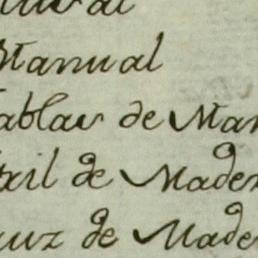 Manual
ablas de Man
txil de Mader
ruz de Made